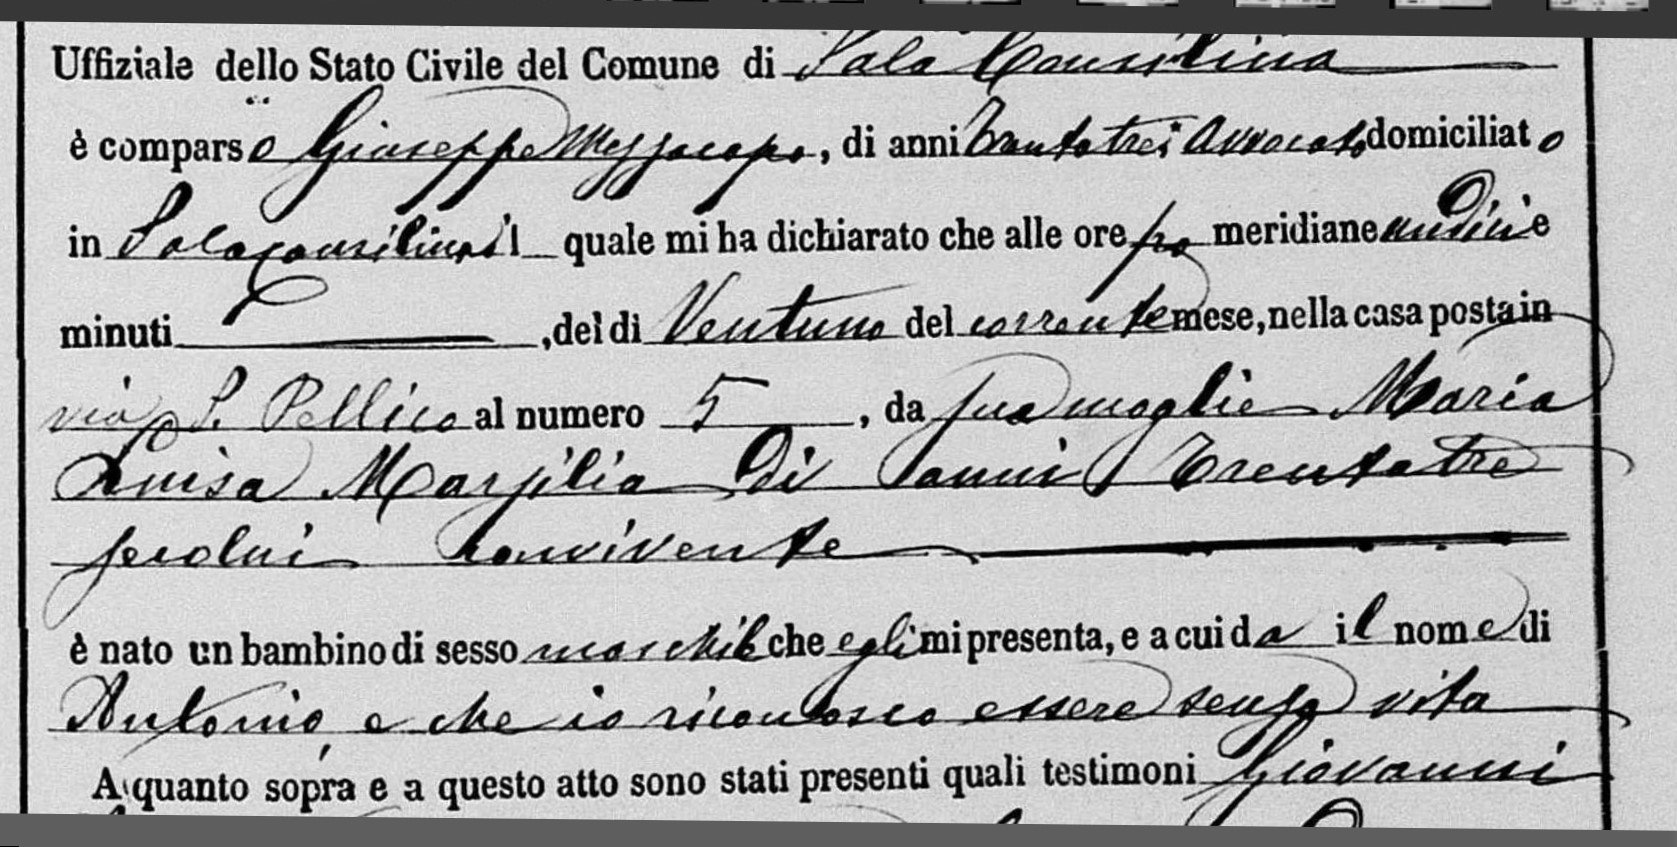 Uffiziale dello Stato Civile del Comune di Sala Consilina
è comparso Giuseppe Mezzacapo, di anni trentatrei Avvocato domiciliato
in Salaconsilina, il quale mi ha dichiarato che alle ore po meridiane undici e
minuti , del dì Ventuno del corrente mese, nella casa posta in
via S. Pellico al numero 5, da sua moglie Maria
Luisa Marsilia Di anni Trentatre
seco lui convivente
è nato un bambino di sesso maschile che egli mi presenta, e a cui da il nome di
Antonio e che io riconosco essere senza vita
A quanto sopra e a questo atto sono stati presenti quali testimoni Giovanni